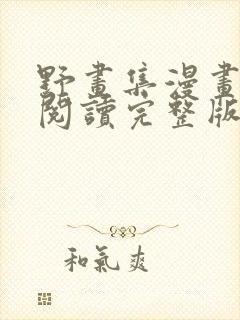 野畫集漫畫
閱讀完整版
和氣爽